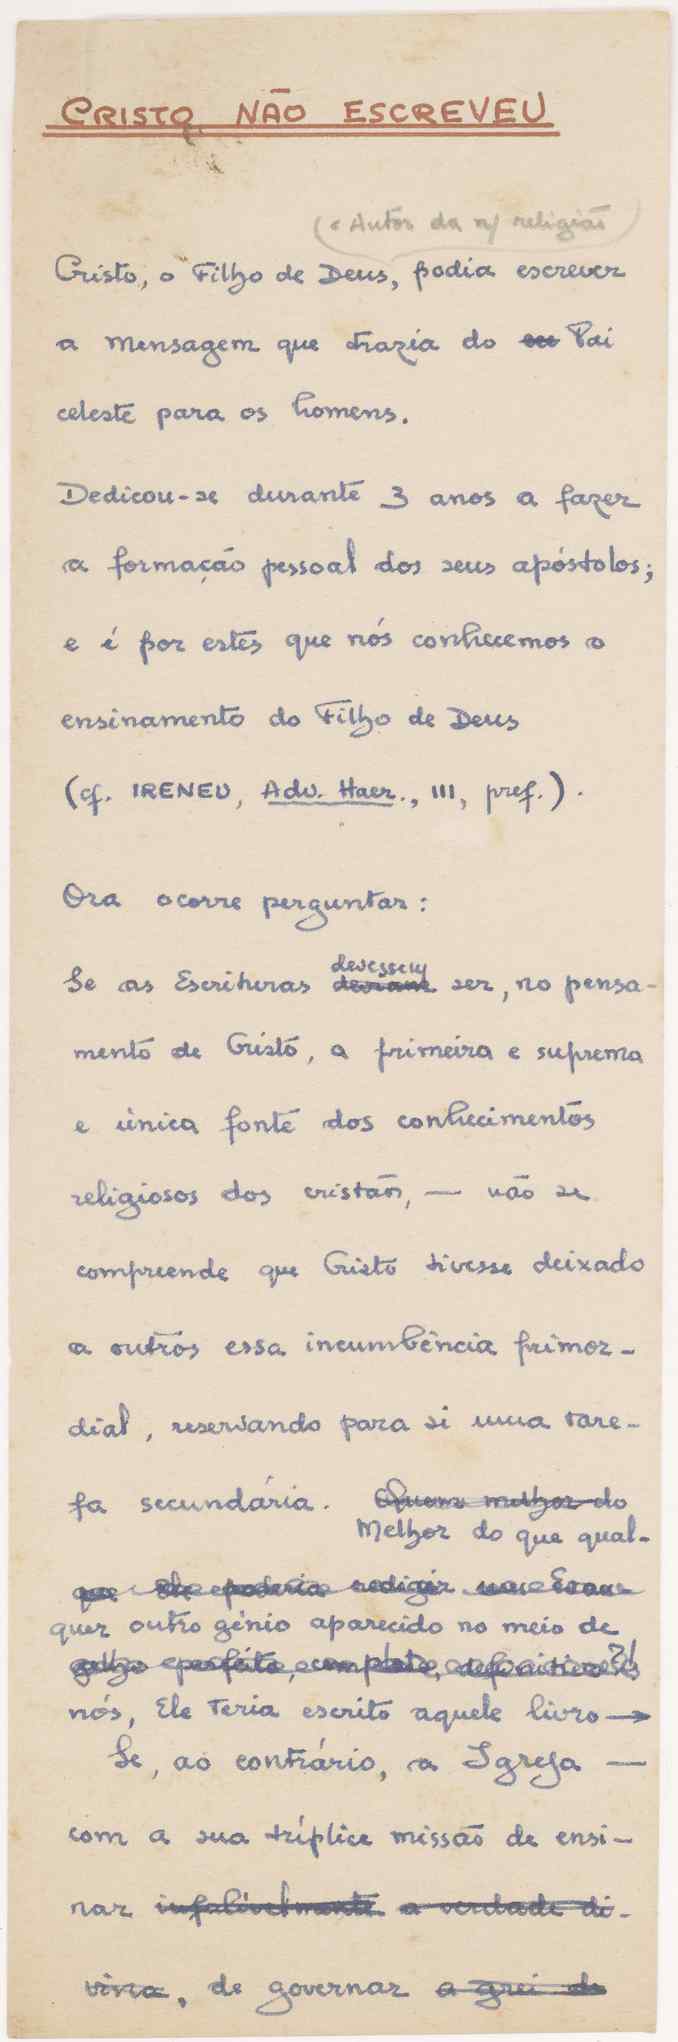 CRISTO NÃO ESCREVEU
(e Autor da n/ religião)
Cristo, o Filho de Deus, podia escrever
a mensagem que trazia do seu Pai
celeste para os homens.
Dedicou-se durante 3 anos a fazer
a formação pessoal dos seus apóstolos;
e é por estes que nós conhecemos o
ensinamento do Filho de Deus
(cf. IRENEU, Adv. Haer., III, pref.).
Ora ocorre perguntar:
devessem
Se as Escrituras deviam ser, no pensa-
mento de Cristo, a primeira e suprema
e única fonte dos conhecimentos
religiosos dos cristãos, — não se
compreende que Cristo tivesse deixado
a outros essa incumbência primor-
dial, reservando para si uma tare-
fa secundária. Quem melhor do
Melhor do que qual-
que Ele poderia redigir um Evan-
quer outro génio aparecido no meio de
gelho perfeito, completo, definitivo?!
nós, Ele teria escrito aquele livro →
Se, ao contrário, a Igreja —
com a sua tríplice missão de ensi-
nar infalivelmente a verdade di-
vina, de governar a grei de